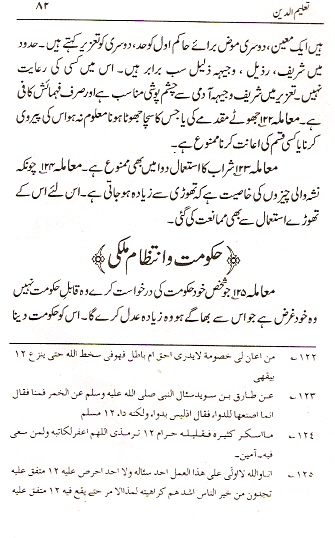 تعلیم الدین ۸۲
ہیں ایک معین، دوسری مفوض برائے حاکم اول کو حد، دوسری کو تعزیر کہتے ہیں۔ حدود
میں شریف، رذیل، وجیہہ ذلیل سب برابر ہیں۔ اس میں کسی کی رعایت
نہیں۔ تعزیر میں شریف وجیہہ آدمی سے چشم پوشی مناسب ہے اور صرف فہمائش کافی
ہے۔ معاملہ ۱۲۲ جھوٹے مقدمے کی یا جس کا سچا جھوٹا ہونا معلوم نہ ہو اس کی پیروی
کرنا یا کسی قسم کی اعانت کرنا ممنوع ہے۔
معاملہ ۱۲۳ شراب کا استعمال دوا میں بھی ممنوع ہے۔ معاملہ ۱۲۴ چونکہ
نشہ والی چیزوں کی خاصیت ہے کہ تھوڑی سے زیادہ ہو جاتی ہے۔ اس لئے اس کے
تھوڑے استعمال سے بھی ممانعت کی گئی۔
﴿حکومت و انتظام ملکی﴾
معاملہ ۱۲۵ جو شخص خود حکومت کی درخواست کرے وہ قابل حکومت نہیں
وہ خود غرض ہے جو اس سے بھاگے ہو وہ زیادہ عدل کرے گا۔ اس کو حکومت دینا
۱۲۲ من اعان لی خصومة لایدری احق ام باطل فهوفی سخط الله حتی ینزع ۱۲
بیقهی
۱۲۳ عن طارق بن سوید سئال النبی صلی الله علیه وسلم عن الخمر فمنا فقال
انما اصنعها للدواء فقال الیس بدواء ولکنه داء ۱۲ مسلم
۱۲۴ ما اسکر کثیره فقلیله حرام ۱۲ ترمذی اللهم اغفر لکاتبه ولمن سعی
فیه۔ آمین۔
۱۲۵ انا والله لا اولّی علی هذا العمل احد سئاله ولا احد احرص علیه ۱۲ متفق علیه
تجدون من خیر الناس اشد هم کراهیته لهذا الامر حتی یقع فیه ۱۲ متفق علیه